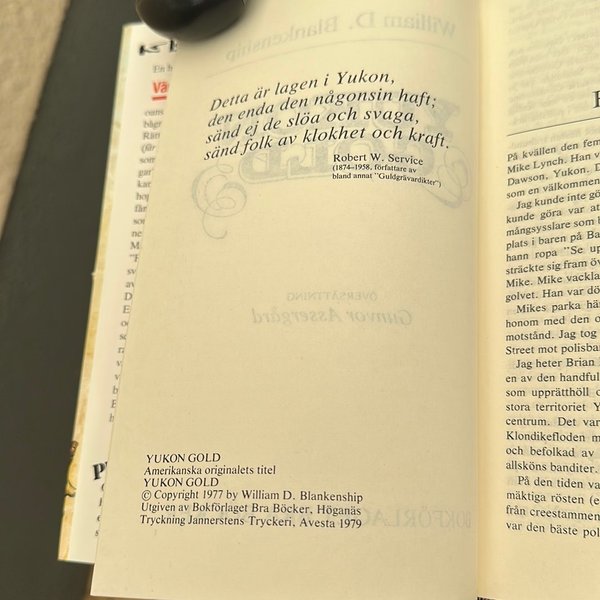 Detta är lagen i Yukon,
den enda den någonsin haft;
sänd ej de slöa och svaga,
sänd folk av klokhet och kraft.
Robert W. Service
(1874–1958, författare av
bland annat "Guldgrävardikter")
William D. Blankenship
ÖVERSÄTTNING
Gunvor Assergård
YUKON GOLD
Amerikanska originalets titel
YUKON GOLD
© Copyright 1977 by William D. Blankenship
Utgiven av Bokförlaget Bra Böcker, Höganäs
Tryckning Jannerstens Tryckeri, Avesta 1979
På kvällen den fem
Mike Lynch. Han v
Dawson, Yukon. D
som en välkommen
Jag kunde inte gö
kunde göra var at
mångsysslare som b
plats i baren på Ba
hann ropa "Se up
sträckte sig fram öv
Mike. Mike vackla
golvet. Han var dö
Mikes parka hä
honom med den o
motstånd. Jag tog
Street mot polisba
Jag heter Brian
en av den handful
som upprätthöll o
stora territoriet Y
centrum. Det var
Klondikefloden m
och befolkad av
allsköns banditer.
På den tiden va
mäktiga rösten (e
från creestammen
var den bäste pol